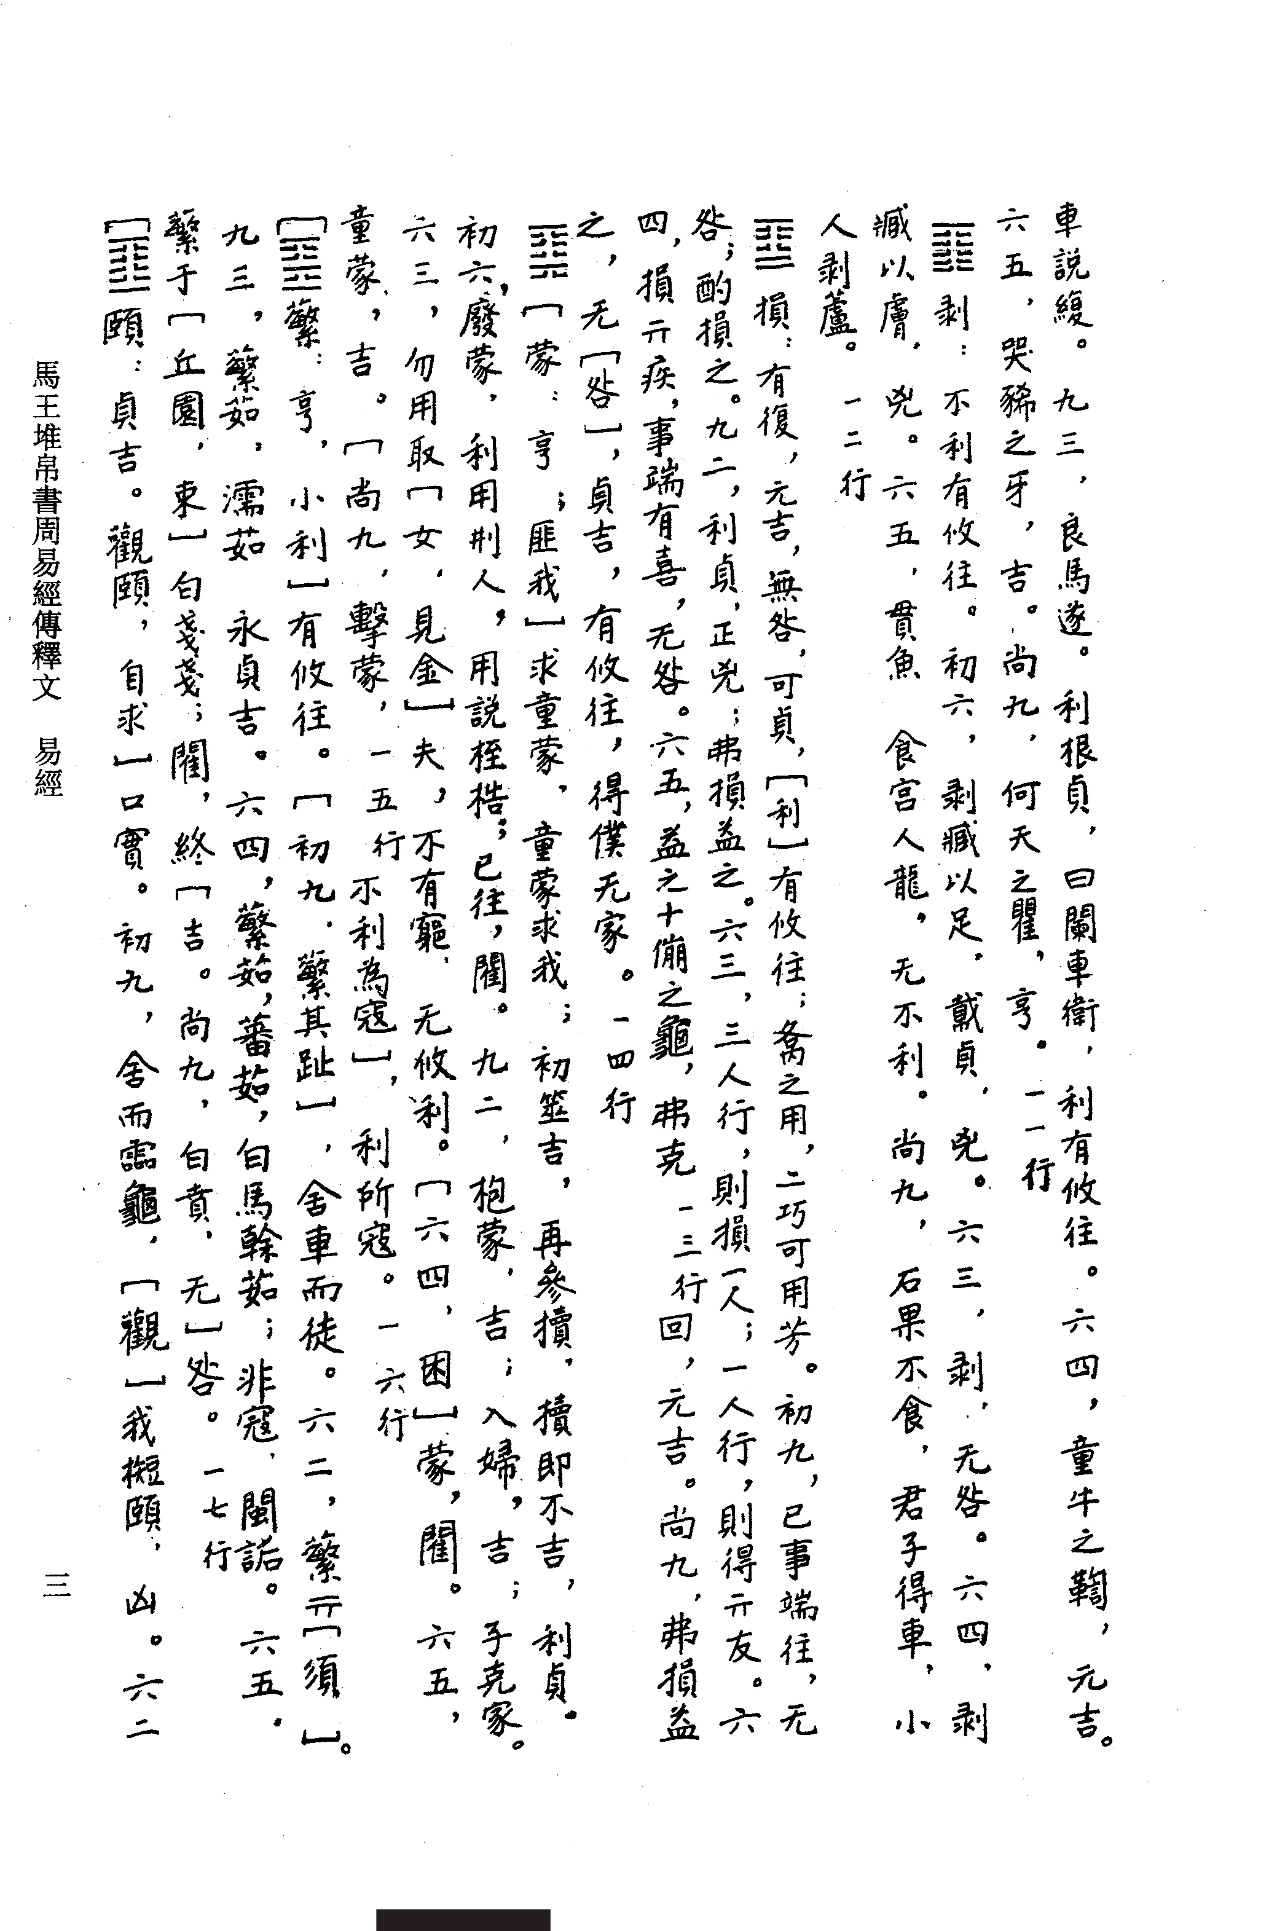 車說緮。九三，良馬遂。利根貞，曰闌車衛，利有攸往。六四，童牛之鞫，元吉。
六五，哭豨之牙，吉。尚九，何天之瞿，亨。一一行
䷖剥：不利有攸往。初六，剥臧以足，戴貞，兇。六三，剥，无咎。六四，剥
臧以膚，兇。六五，貫魚　食宮人龍，无不利。尚九，石果不食，君子得車，小
人剥蘆。一二行
䷨損：有復，元吉，無咎，可貞，［利］有攸往；禼之用，二巧可用芳。初九，已事端往，无
咎；酌損之。九二，利貞，正兇；弗損益之。六三，三人行，則損一人；一人行，則得亓友。六
四，損亓疾，事端有喜，无咎。六五，益之十傰之龜，弗克　一三行回，元吉。尚九，弗損益
之，无［咎］，貞吉，有攸往，得僕无家。一四行
䷃［蒙：亨；匪我］求童蒙，童蒙求我；初筮吉，再參擯，擯即不吉，利貞。
初六，廢蒙，利用刑人，用說桎梏；已往，閵。九二，枹蒙，吉；入婦，吉；子克家。
六三，勿用取［女，見金］夫，不有竆，无攸利。［六四，困］蒙，閵。六五，
童蒙，吉。［尚九，擊蒙，一五行不利為寇］，利所寇。一六行
［䷕］蘩：亨，小利］有攸往。［初九，蘩其趾］，舍車而徒。六二，蘩亓［須］。
九三，蘩茹，濡茹　永貞吉。六四，蘩茹，蕃茹，白馬榦茹；非寇，閩詬。六五，
蘩于［丘園，束］白戔戔；閵，終［吉。尚九，白賁，无］咎。一七行
［䷚頤：貞吉。觀頤，自求］口實。初九，舍而靁龜，［觀］我㨖頤，凶。六二
馬王堆帛書周易經傳釋文　易經
三